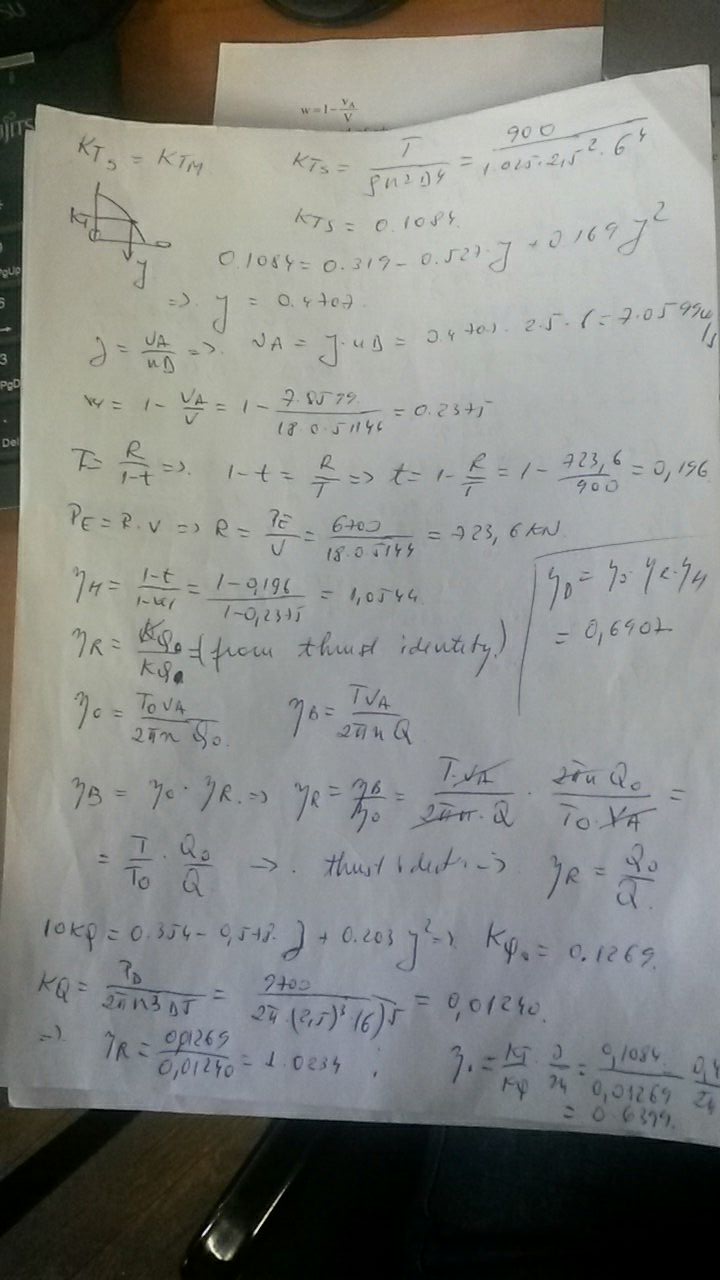 w = 1 - vA/V
KTs = KTM    KTs = T/(ρn²D⁴) = 900/(1.025·2,5²·6⁴)
KTs = 0.1084.
KT
J
0.1084 = 0.319 - 0.527·J + 0.169 J²
=> J = 0.4707.
J = VA/nD => VA = J·nD = 0.4707·2.5·6 = 7.0599 m/s
w = 1 - VA/V = 1 - 7.0599/(18·0.5144) = 0.2375
T = R/(1-t) => 1-t = R/T => t = 1 - R/T = 1 - 723,6/900 = 0,196
PE = R·V => R = PE/V = 6700/(18·0.5144) = 723,6 KN
ηH = (1-t)/(1-w) = (1-0,196)/(1-0,2375) = 1,0544
ηD = ηo·ηR·ηH
= 0,6907
ηR = KQo/KQ = (from thrust identity)
ηo = ToVA/(2πn Qo)    ηB = TVA/(2πn Q)
ηB = ηo·ηR => ηR = ηB/ηo = T·VA/(2πn·Q) · 2πn Qo/(To·VA) =
= T/To · Qo/Q -> thrust ident. => ηR = Qo/Q
10KQ = 0.354 - 0,578·J + 0.203 J² => KQo = 0.1269.
KQ = PD/(2πn³D⁵) = 9700/(2π·(2,5)³·(6)⁵) = 0,01240.
=> ηR = 0,01269/0,01240 = 1.0234 ;    ηo = KT/KQ · J/2π = 0,1084/0,01269 · 0,4/2π
= 0.6399.
PgUp
3
PgD
Del